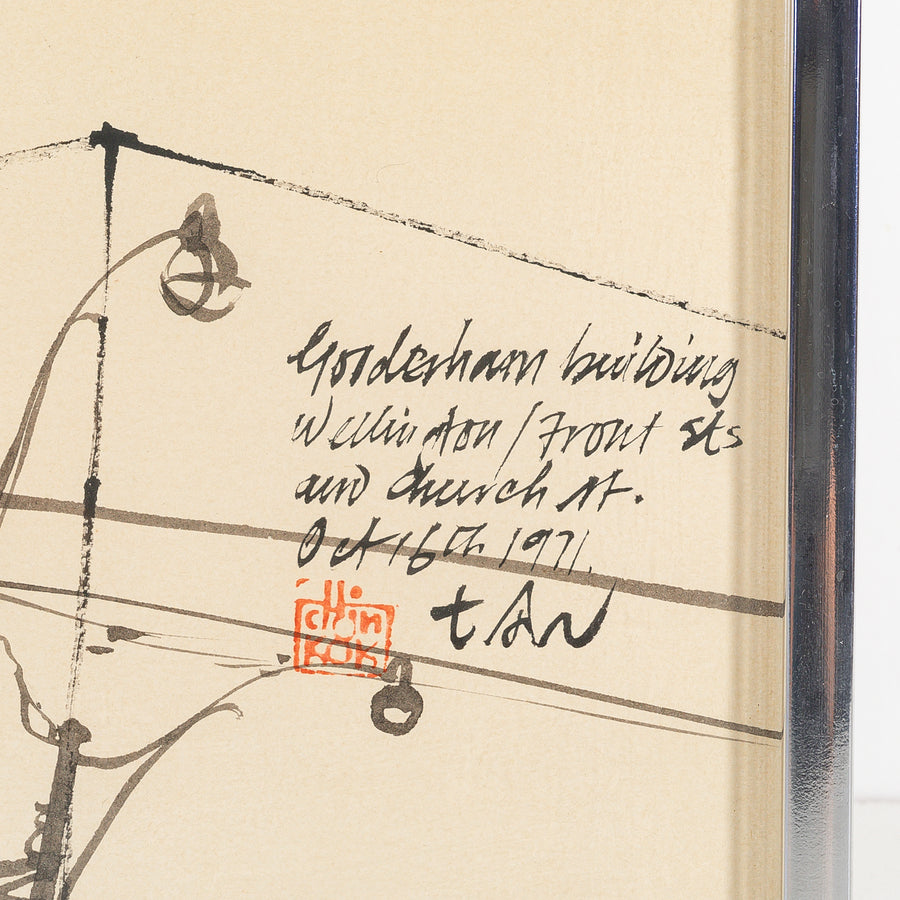 Gorderham building
Wellington / Front sts
and Church st.
Oct 16th 1971.
tAN
chin
KOK